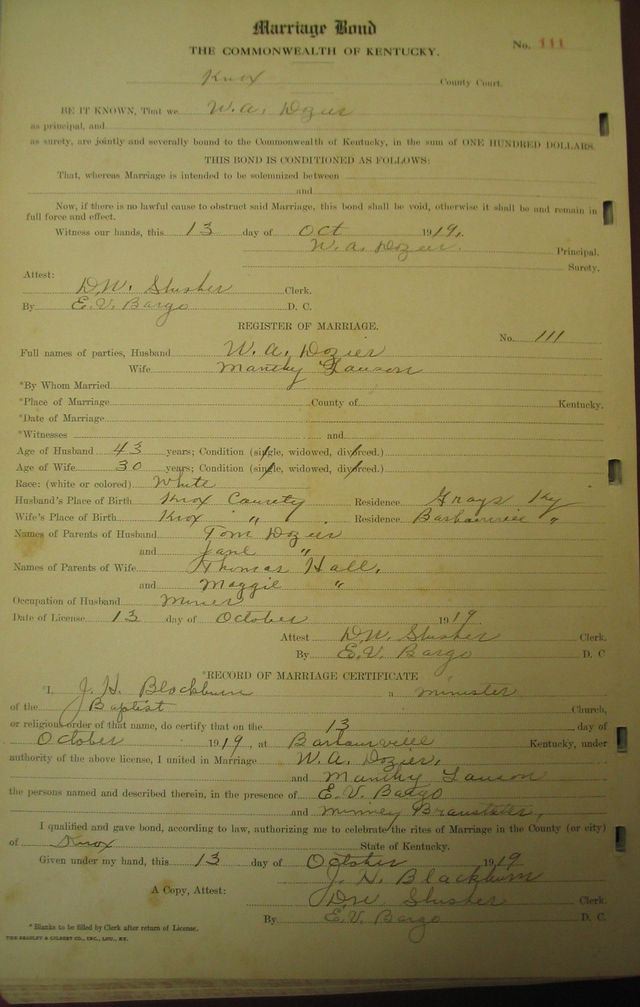 Marriage Bond
THE COMMONWEALTH OF KENTUCKY.
No. 111
Knox County Court.
BE IT KNOWN, That we W. A. Dozier
as principal, and
as surety, are jointly and severally bound to the Commonwealth of Kentucky, in the sum of ONE HUNDRED DOLLARS.
THIS BOND IS CONDITIONED AS FOLLOWS:
That, whereas Marriage is intended to be solemnized between
and
Now, if there is no lawful cause to obstruct said Marriage, this bond shall be void, otherwise it shall be and remain in
full force and effect.
Witness our hands, this 13 day of Oct 1919.
W. A. Dozier. Principal.
Surety.
Attest:
D.W. Slusher Clerk.
By E. V. Bargo D. C.
REGISTER OF MARRIAGE.
No. 111
Full names of parties, Husband W. A. Dozier
Wife Manthy Lawson
*By Whom Married
*Place of Marriage County of Kentucky.
*Date of Marriage
*Witnesses and
Age of Husband 43 years; Condition (single, widowed, divorced.)
Age of Wife 30 years; Condition (single, widowed, divorced.)
Race: (white or colored) White
Husband's Place of Birth Knox County Residence Grays Ky
Wife's Place of Birth Knox " Residence Barbourville "
Names of Parents of Husband Tom Dozier
and Jane "
Names of Parents of Wife Thomas Hall,
and Maggie "
Occupation of Husband Miner
Date of License 13 day of October 1919
Attest D.W. Slusher Clerk.
By E. V. Bargo D. C
*RECORD OF MARRIAGE CERTIFICATE
*I, J. H. Blackburn a minister
of the Baptist Church,
or religious order of that name, do certify that on the 13 day of
October 1919, at Barbourville Kentucky, under
authority of the above license, I united in Marriage W. A. Dozier,
and Manthy Lawson
the persons named and described therein, in the presence of E. V. Bargo
and
I qualified and gave bond, according to law, authorizing me to celebrate the rites of Marriage in the County (or city)
of Knox State of Kentucky.
Given under my hand, this 13 day of October 1919
J. H. Blackburn
A Copy, Attest: DW Slusher Clerk.
By E. V. Bargo D. C.
* Blanks to be filled by Clerk after return of License.
THE BRADLEY & GILBERT CO., INC., LOU., KY.